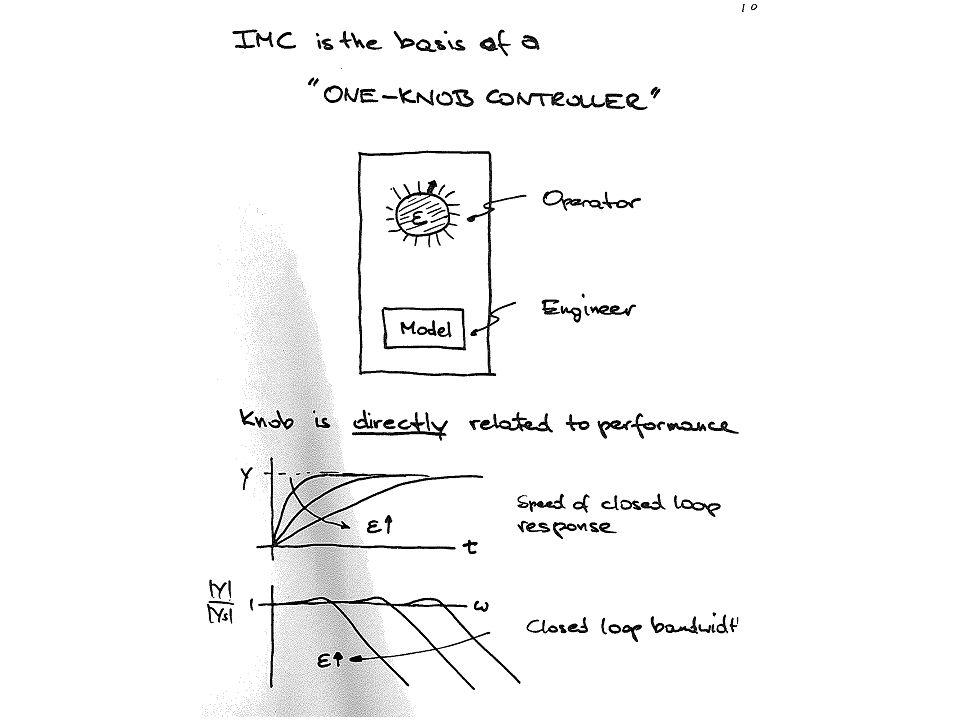 10
IMC is the basis of a
"ONE-KNOB CONTROLLER"
ε
Operator
Model
Engineer
Knob is directly related to performance
Y
ε↑
t
Speed of closed loop
response
|Y|
|Ys|
1
ω
ε↑
Closed loop bandwidt